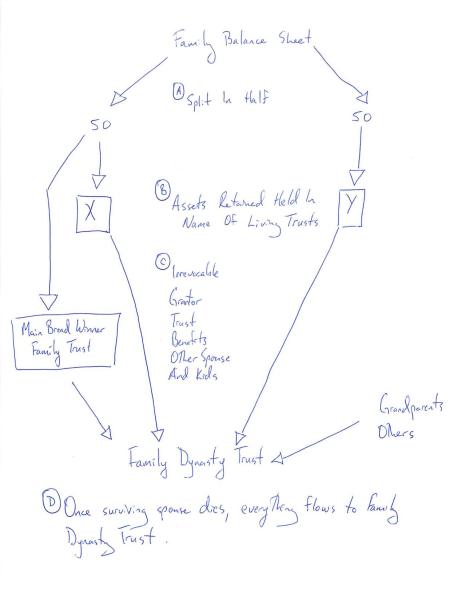 Family Balance Sheet
A Split In Half
50
50
X
B Assets Retained Held In
Name Of Living Trusts
Y
C Irrevocable
Grantor
Trust
Benefits
Other Spouse
And Kids
Main Bread Winner
Family Trust
Grandparents
Others
Family Dynasty Trust
D Once surviving spouse dies, everything flows to Family
Dynasty Trust.